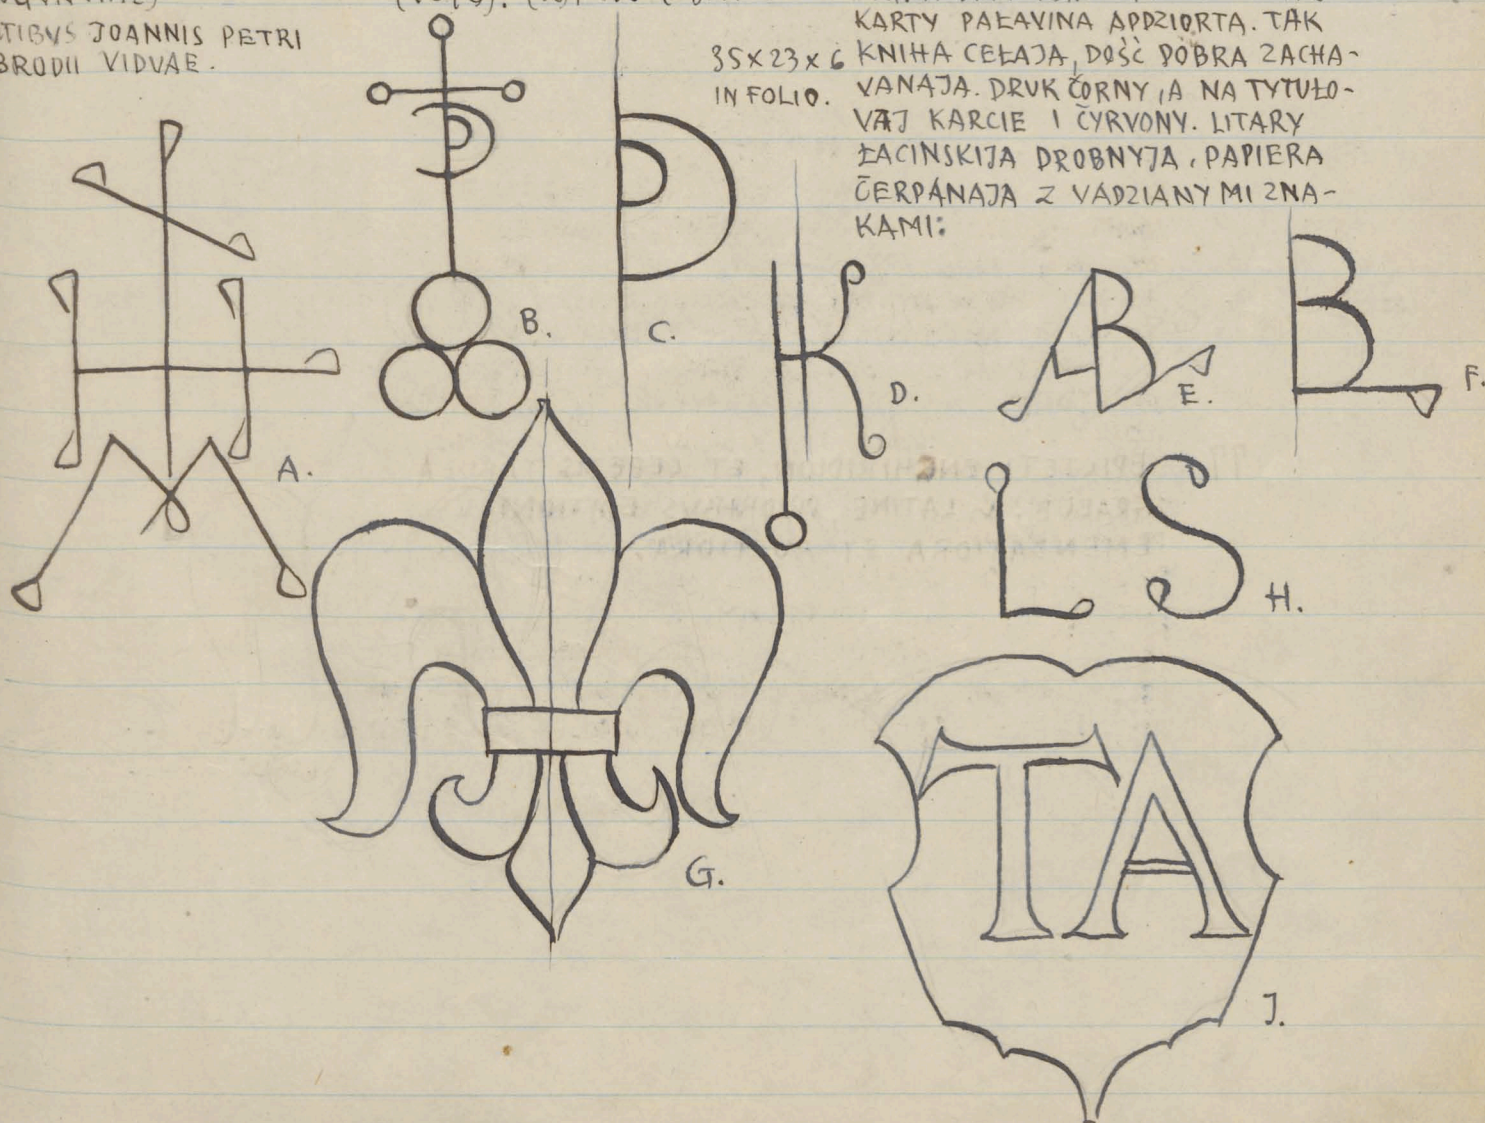 TIBVS JOANNIS PETRI
BRODII VIDVAE.
35×23×6
IN FOLIO.
KARTY PAŁAVINA APDZIORTA. TAK
KNIHA CEŁAJA, DOŚĆ DOBRA ZACHA-
VANAJA. DRUK ČORNY, A NA TYTUŁO-
VAJ KARCIE I ČYRVONY. LITARY
ŁACINSKIJA DROBNYJA, PAPIERA
ČERPANAJA Z VADZIANYMI ZNA-
KAMI:
A.
B.
C.
D.
E.
F.
G.
LS
H.
TA
J.